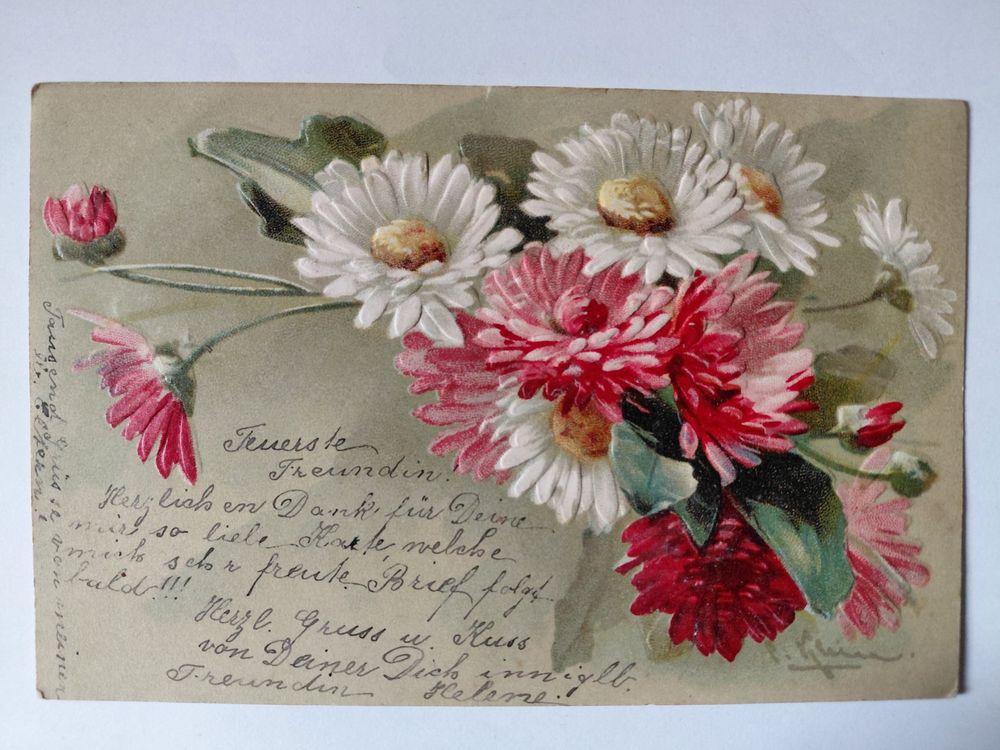 Teuerste
Freundin!
Herzlichen Dank für Deine
mir so liebe Karte, welche
mich sehr freute. Brief folgt
bald!!!
Herzl. Gruss u. Kuss
von Deiner Dich inniglb.
Freundin Helene.
Tausend Grüsse von meiner
C. Klein